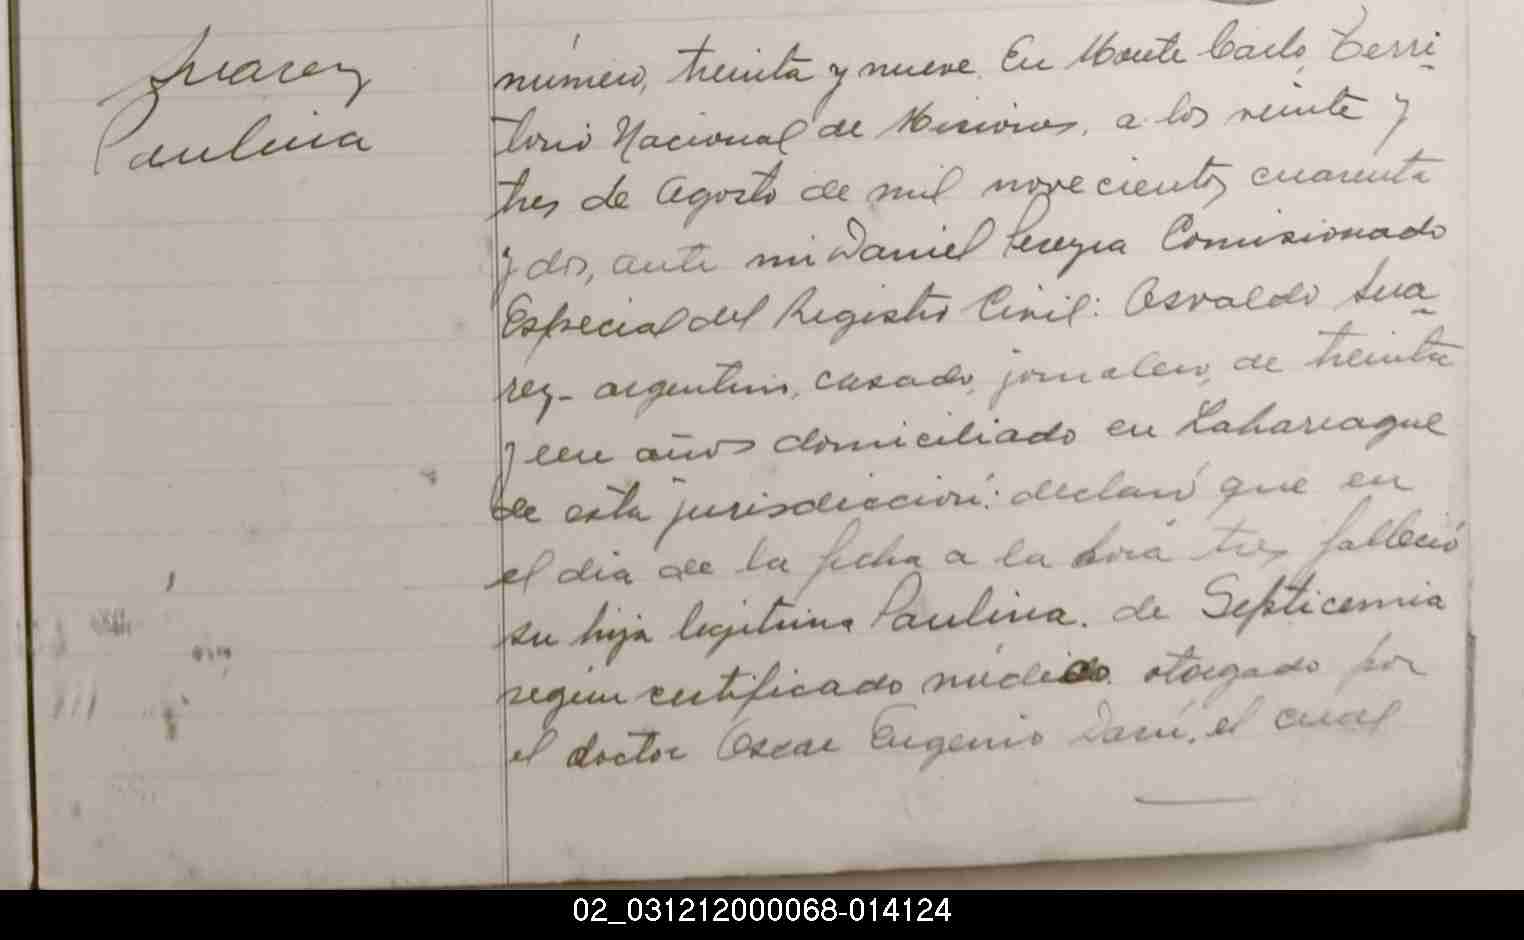 Suarez
Paulina
número, treinta y nueve. En Monte Carlo, Terri-
torio Nacional de Misiones, a los veinte y
tres de Agosto de mil novecientos cuarenta
y dos, ante mi Daniel Pereyra Comisionado
Especial del Registro Civil: Osvaldo Sua-
rez- argentino, casado, jornalero, de treinta
y un años domiciliado en Laharrague
de esta jurisdiccion: declaró que en
el dia de la fecha a la hora tres falleció
su hija legitima Paulina. de Septicemia
según certificado médico otorgado por
el doctor Oscar Eugenio Darú, el cual
02_031212000068-014124